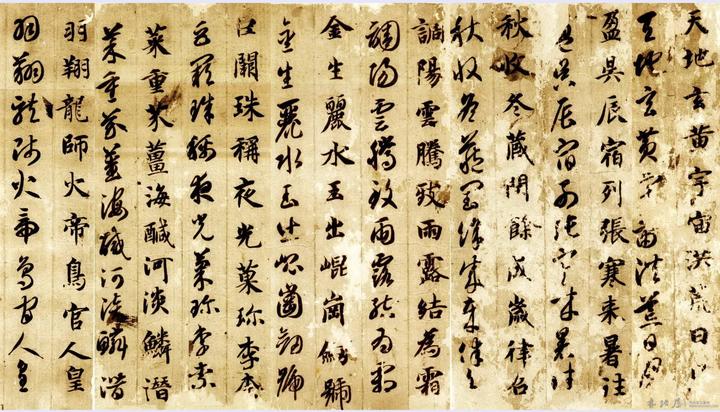 天地玄黄宇宙洪荒日月
天地玄黄宇宙洪荒日月
盈昃辰宿列張寒来暑往
盈昃辰宿列張寒来暑往
秋收冬藏閏餘成歲律呂
秋收冬藏閏餘成歲律呂
調陽雲騰致雨露結為霜
調陽雲騰致雨露結為霜
金生麗水玉出崐崗劒號
金生麗水玉出崐崗劒號
巨闕珠稱夜光菓珍李柰
巨闕珠稱夜光菓珍李柰
菜重芥薑海醎河淡鱗潜
菜重芥薑海醎河淡鱗潜
羽翔龍師火帝鳥官人皇
羽翔龍師火帝鳥官人皇